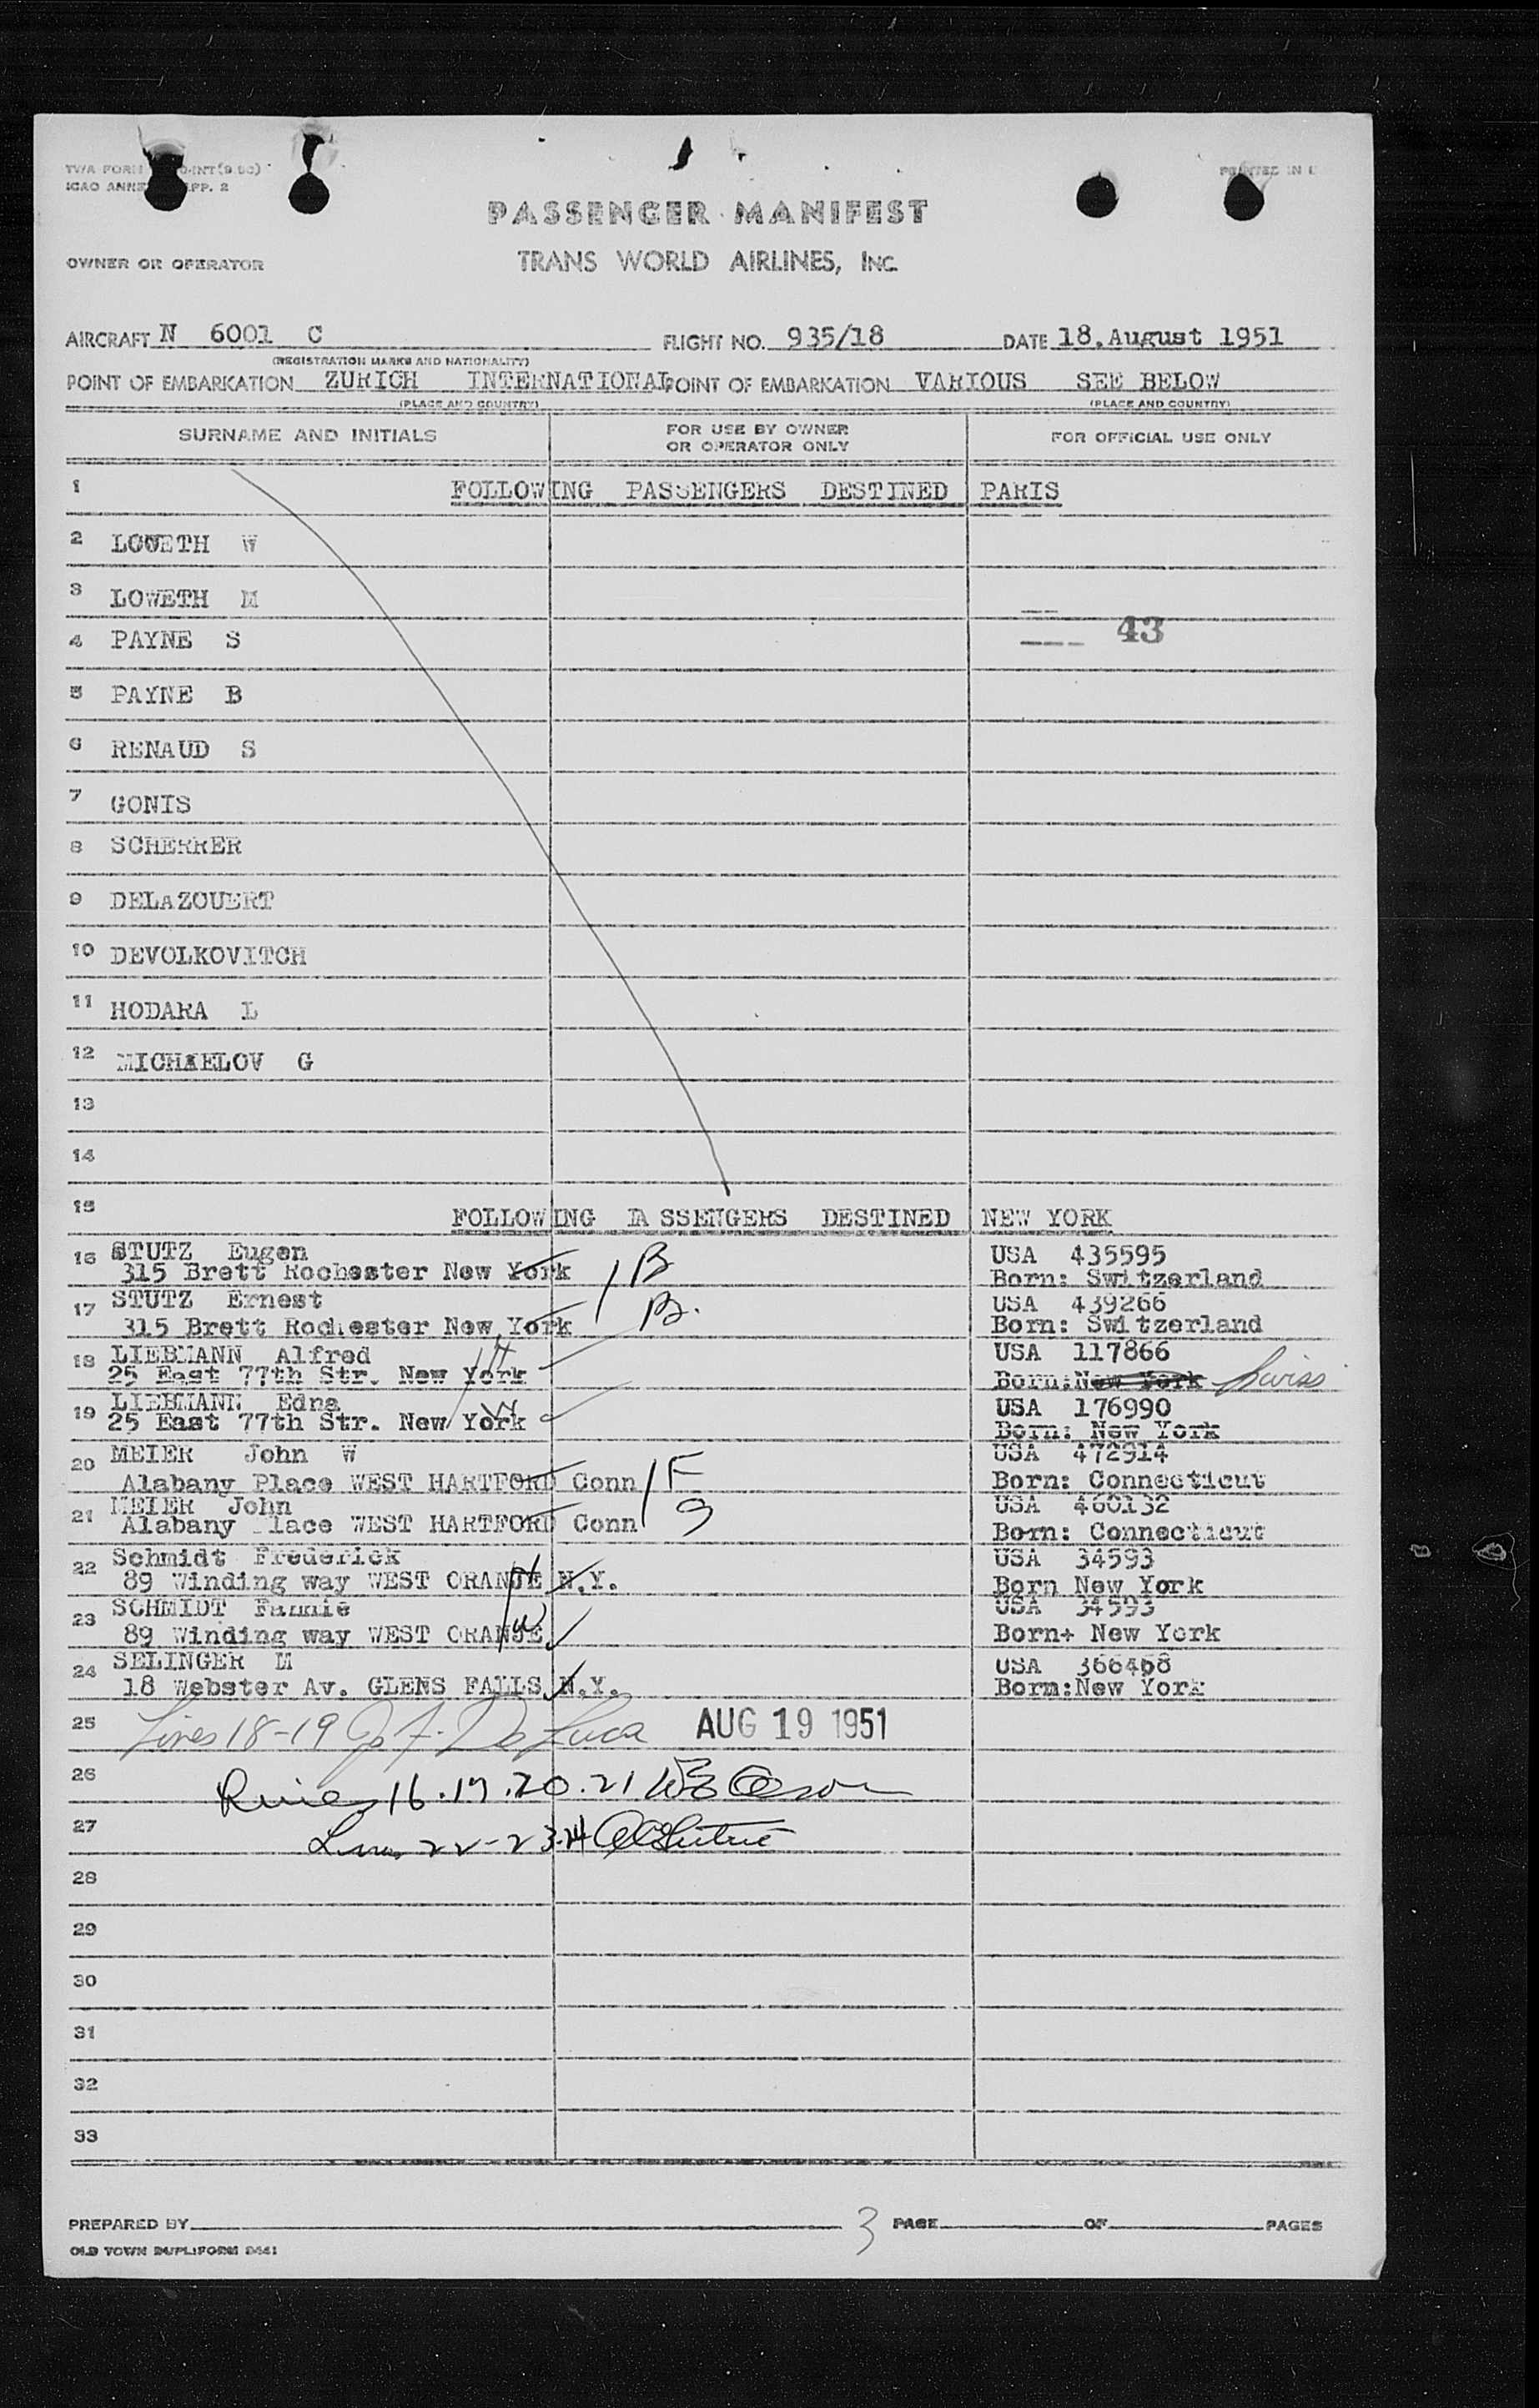 PASSENGER MANIFEST
OWNER OR OPERATOR TRANS WORLD AIRLINES, INC.
AIRCRAFT N 6001 C FLIGHT NO. 935/18 DATE 18.August 1951
(REGISTRATION MARKS AND NATIONALITY)
POINT OF EMBARKATION ZURICH INTERNATIONAL POINT OF EMBARKATION VARIOUS SEE BELOW
(PLACE AND COUNTRY) (PLACE AND COUNTRY)
SURNAME AND INITIALS FOR USE BY OWNER OR OPERATOR ONLY FOR OFFICIAL USE ONLY
1 FOLLOWING PASSENGERS DESTINED PARIS
2 LOWETH W
3 LOWETH M
43
4 PAYNE S
5 PAYNE B
6 RENAUD S
7 GONIS
8 SCHERRER
9 DELAZOUERT
10 DEVOLKOVITCH
11 HODARA L
12 MICHAELOV G
13
14
15 FOLLOWING PASSENGERS DESTINED NEW YORK
16 STUTZ Eugen B USA 435595
315 Brett Rochester New York Born: Switzerland
17 STUTZ Ernest B. USA 439266
315 Brett Rochester New York Born: Switzerland
18 LIEBMANN Alfred H USA 117866
25 East 77th Str. New York Born:New York Swiss
19 LIEBMANN Edna W USA 176990
25 East 77th Str. New York Born: New York
20 MEIER John W F USA 472914
Alabany Place WEST HARTFORD Conn Born: Connecticut
21 MEIER John USA 460132
Alabany Place WEST HARTFORD Conn Born: Connecticut
22 Schmidt Frederick H USA 34593
89 Winding way WEST ORANJE N.Y. Born New York
23 SCHMIDT Fannie W USA 34593
89 Winding way WEST ORANJE Born+ New York
24 SELINGER M USA 366468
18 Webster Av. GLENS FALLS N.Y. Born:New York
25 Lines 18-19 J. F. De Luca AUG 19 1951
26 16.17.20.21
27 Lines 22-23-24
28
29
30
31
32
33
PREPARED BY 3 PAGE OF PAGES
OLD TOWN DUPLIFORM